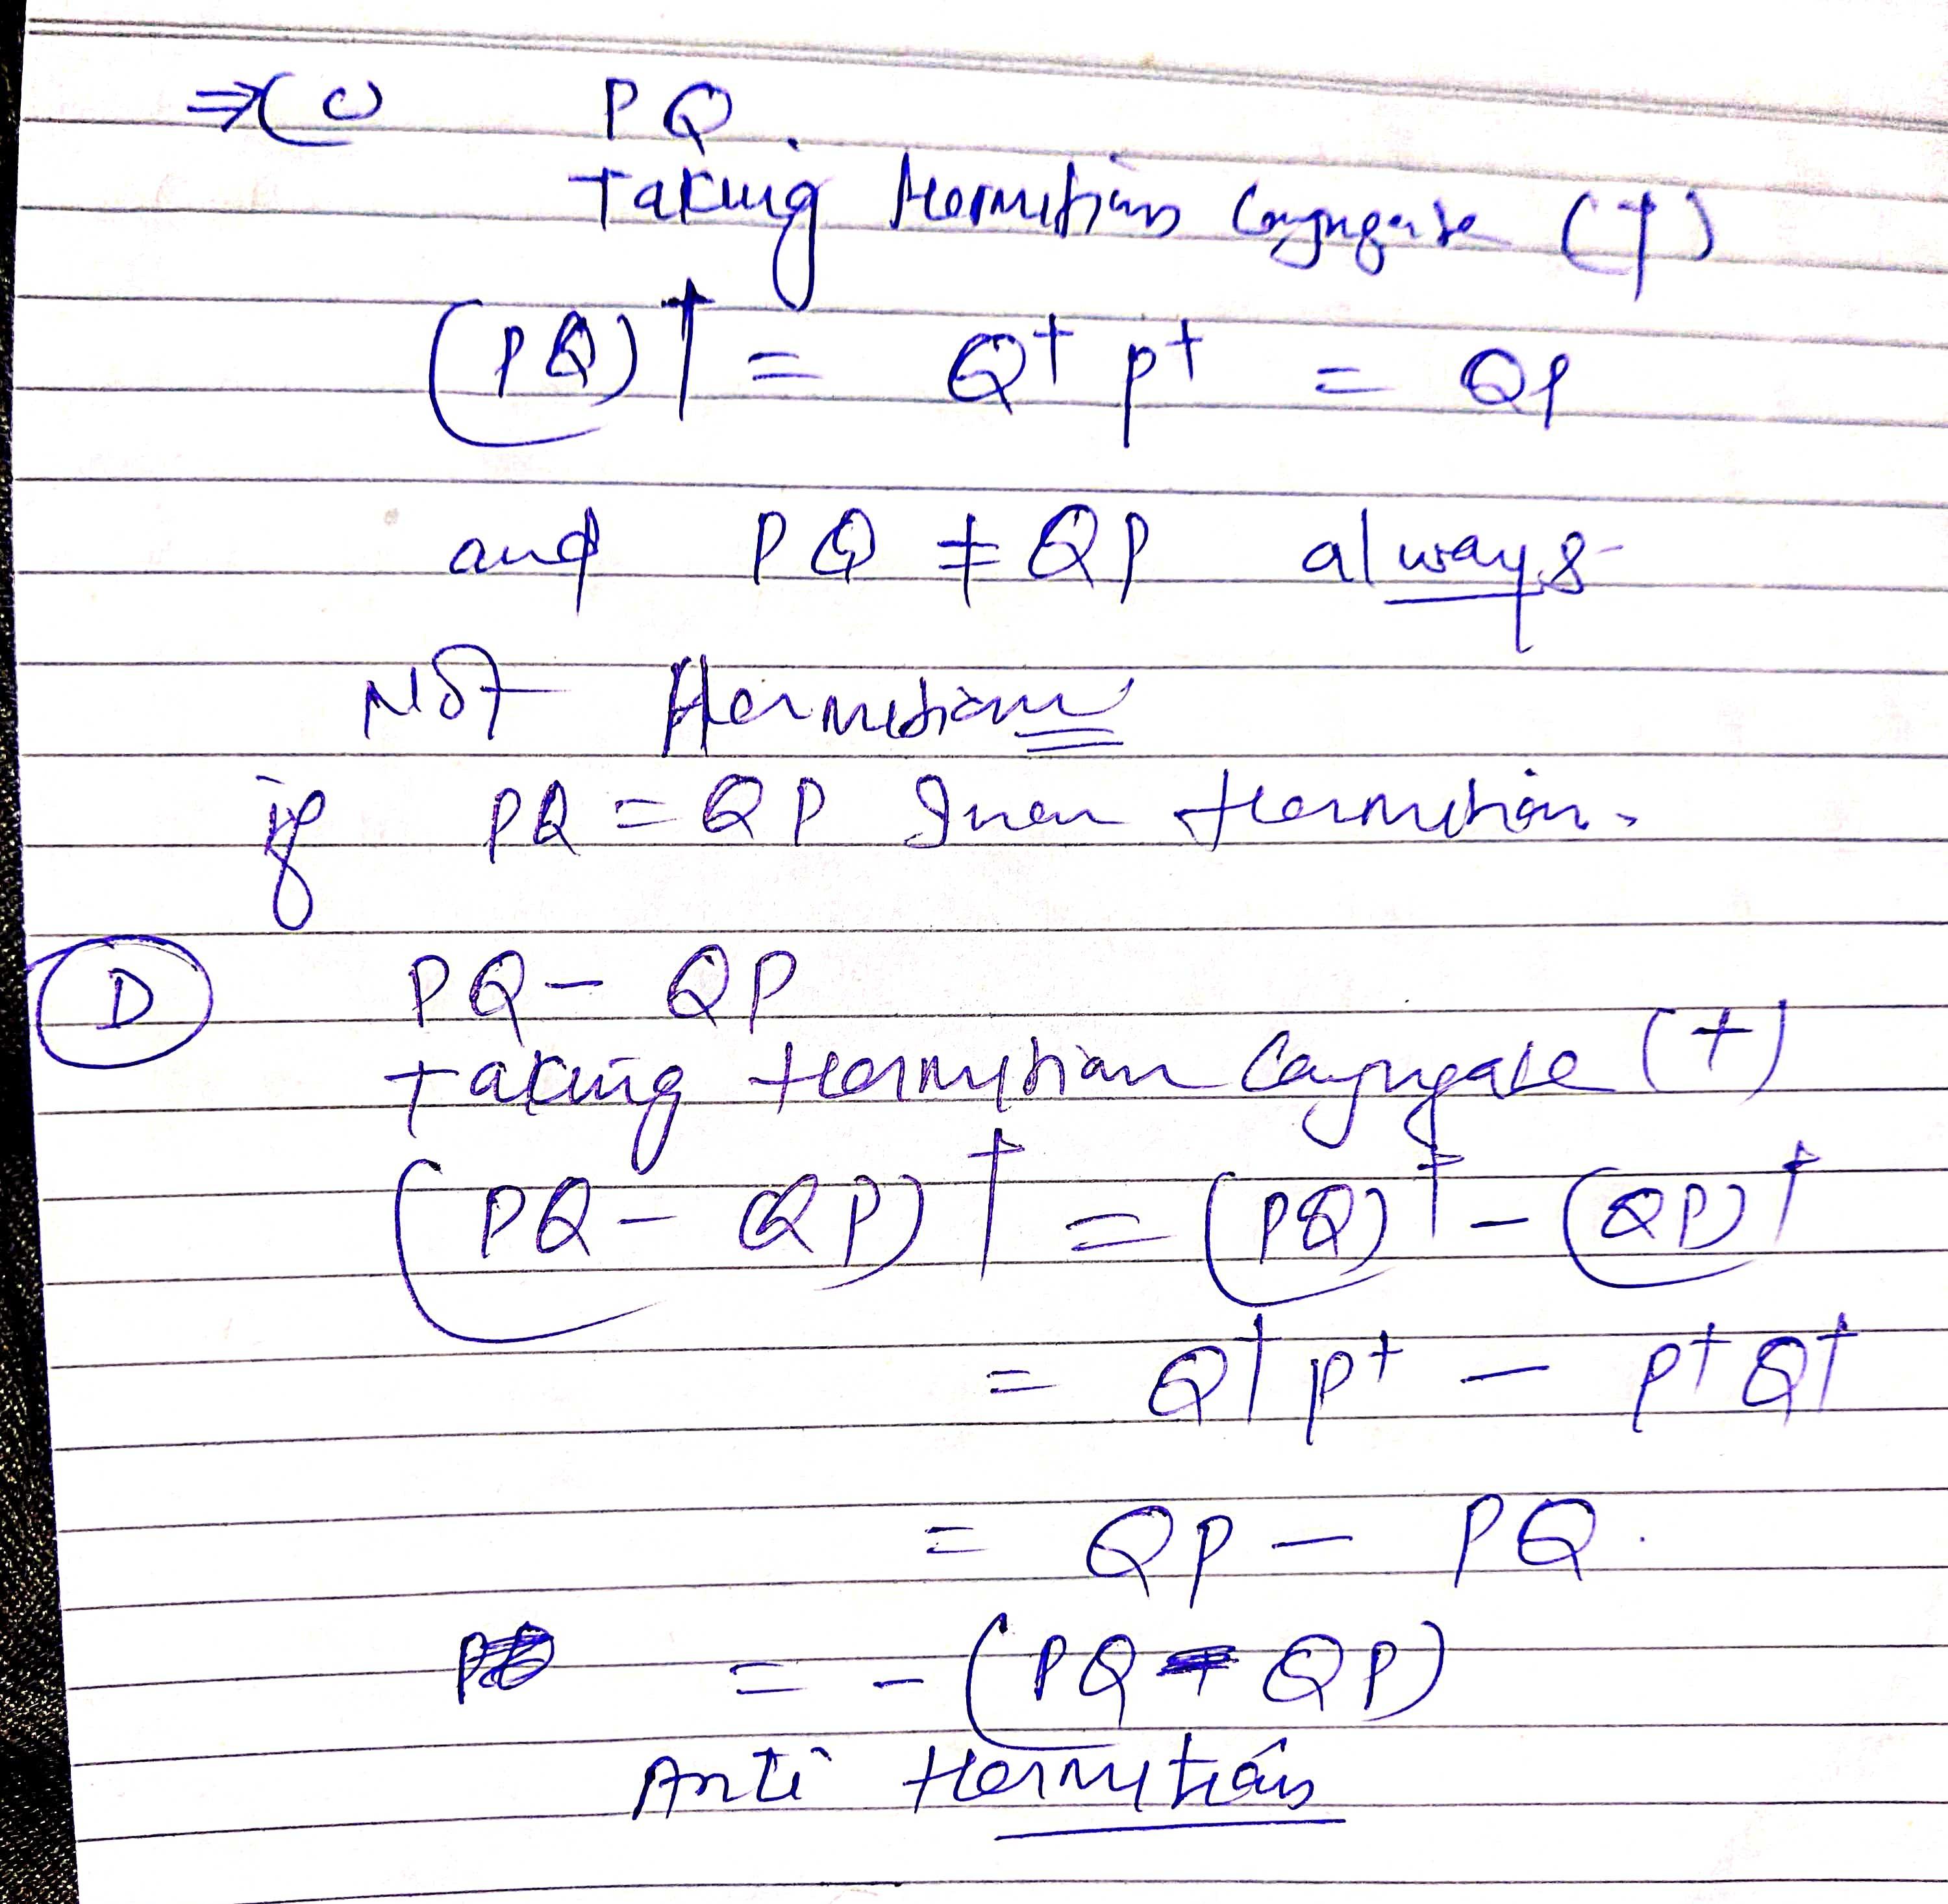 ⇒(C) PQ
Taking Hermitian Conjugate (†)
(PQ)† = Q† P† = QP
and PQ ≠ QP always
Not Hermitian
if PQ = QP then Hermition.
(D) PQ - QP
Taking Hermitian Conjugate (†)
(PQ - QP)† = (PQ)† - (QP)†
= Q† P† - P† Q†
= QP - PQ.
= - (PQ - QP)
Anti Hermitian